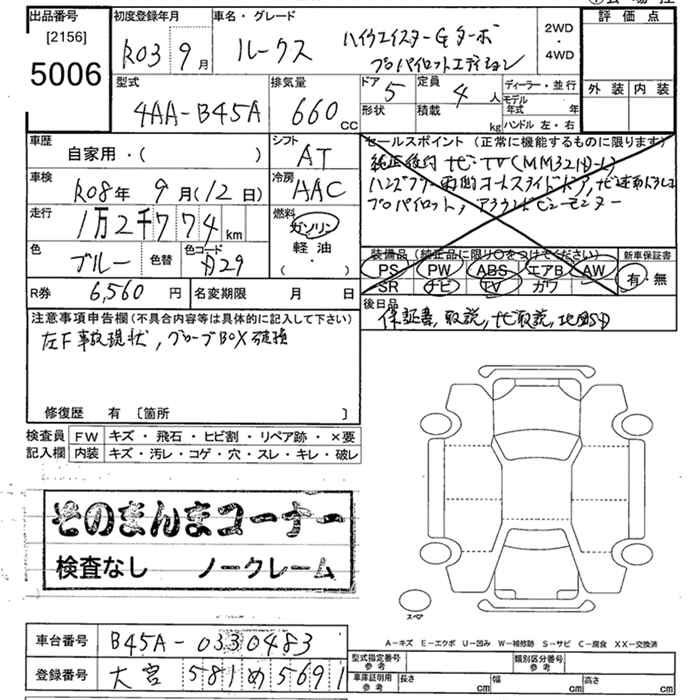 出品番号 初度登録年月 車名・グレード 評価点
[2156]
5006
R03 9月 ルークス ハイウェイスターGターボ プロパイロットエディション
2WD・4WD
型式 排気量 ドア 5 定員 4人 ディーラー・並行 外装 内装
4AA-B45A 660cc 形状 積載 kg モデル年式 年
ハンドル 左・右
車歴 シフト セールスポイント(正常に機能するものに限ります)
自家用・( ) AT
純正後付 ナビ・TV(MM321D-L)
車検 冷房
R08年 9月(12日) AAC
ハンズフリー両側オートスライドドア,
プロパイロット, アラウンドビューモニター
走行 燃料
1万2千774km ガソリン
軽油
( ・ )
色 色替 色コード
ブルー B29
装備品(純正品に限り○をつけてください) 新車保証書
PS PW ABS エアB AW 有・無
SR ナビ TV カワ
R券 6,560円 名変期限 月 日
後日品
保証書,取説,ナビ取説,地図SD
注意事項申告欄(不具合内容等は具体的に記入して下さい)
左F事故現状,グローブBOX破損
修復歴 有 〔箇所 〕
検査員 FW キズ・飛石・ヒビ割・リペア跡・×要
記入欄 内装 キズ・汚レ・コゲ・穴・スレ・キレ・破レ
そのまんまコーナー
検査なし ノークレーム
スペア
A-キズ E-エクボ U-凹み W-補修跡 S-サビ C-腐食 XX-交換済
車台番号 B45A-0330483
登録番号 大宮 581 め 5691
型式指定番号 参考 類別区分番号 参考
車庫証明用 参考 長さ cm 幅 cm 高さ cm